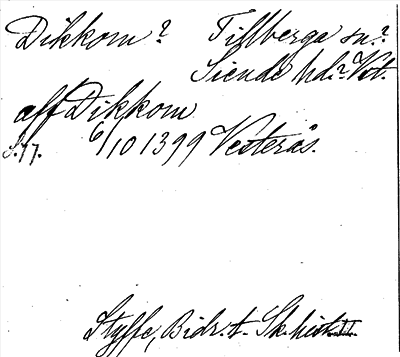 Dikkom? Tillberga sn.?
Siende hd.? Vstm.
aff Dikkom
S. 77. 6/10 1399 Vesterås.
Styffe, Bidr. t. Sk. hist. II.